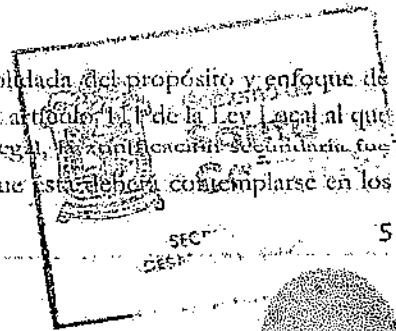 olidada del propósito y enfoque de
artículo 111 de la Ley Local al que
egal, la zonificación secundaria fue
ue esta deberá contemplarse en los
SEC
DES
5